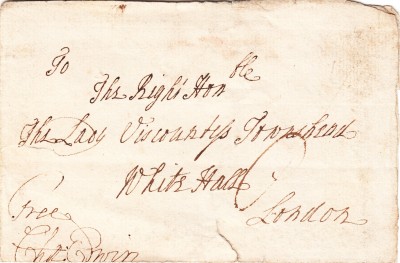 To
The Right Hon ble
The Lady Viscountess Townshend
White Hall
London
Free
Cha: Edwin